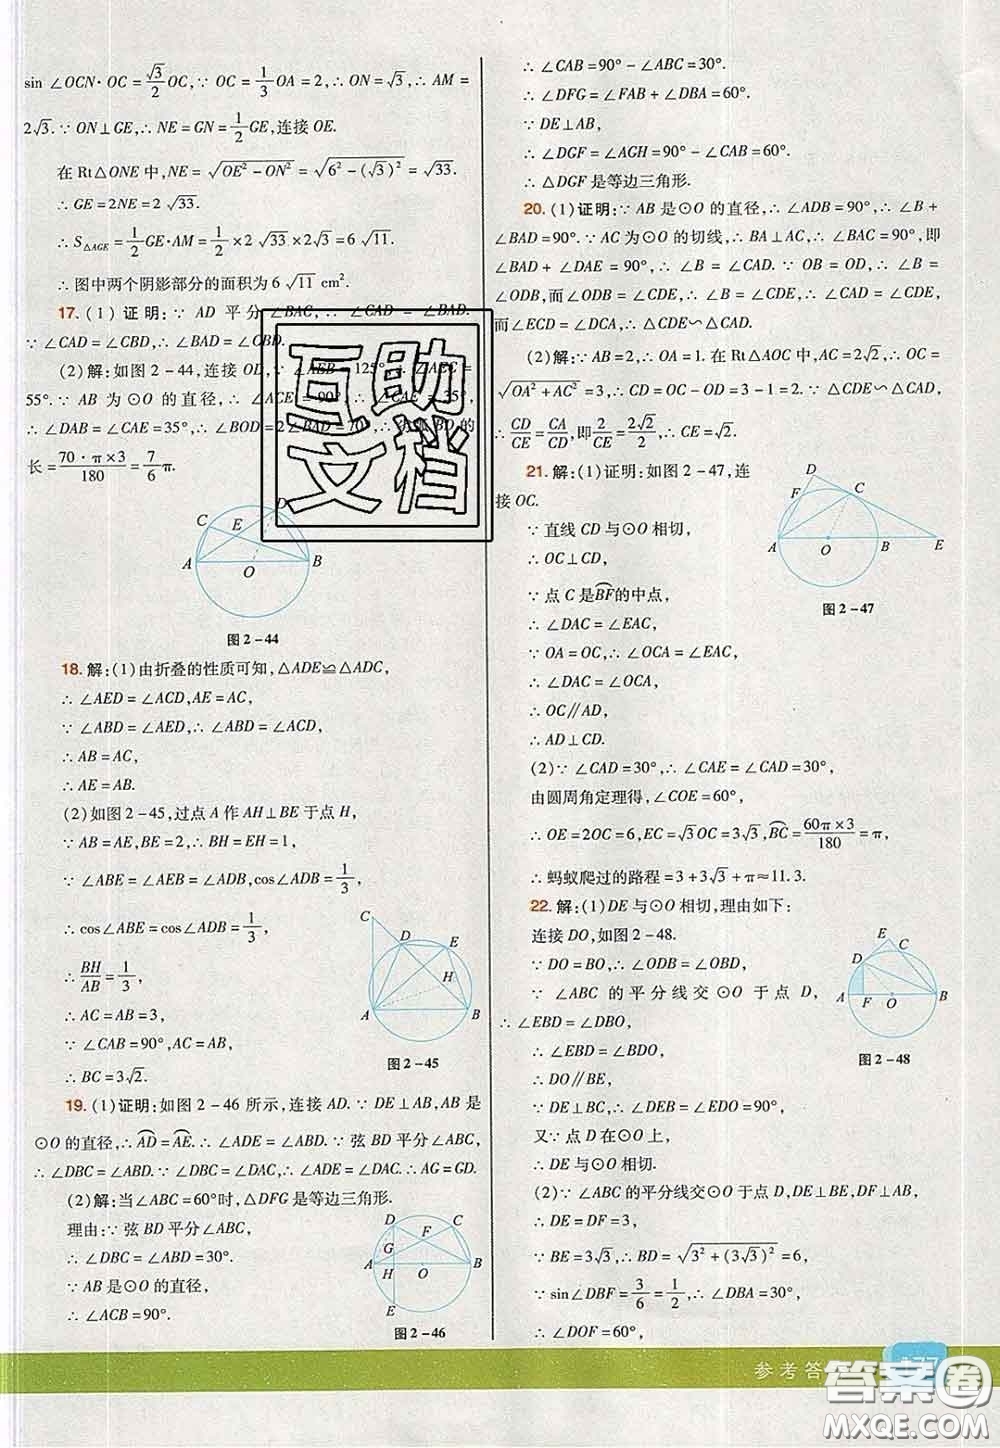 sin ∠OCN·OC=√3/2 OC,∵ OC=1/3 OA=2,∴ ON=√3,∴ AM=
2√3.∵ ON⊥GE,∴ NE=GN=1/2 GE,连接 OE.
在 Rt△ONE 中,NE=√(OE²-ON²)=√(6²-(√3)²)=√33.
∴ GE=2NE=2√33.
∴ S△AGE=1/2 GE·AM=1/2×2√33×2√3=6√11.
∴ 图中两个阴影部分的面积为 6√11 cm².
17.(1)证明:∵ AD 平分∠BAC,∴ ∠CAD=∠BAD.
∵ ∠CAD=∠CBD,∴ ∠BAD=∠CBD.
(2)解:如图 2-44,连接 OD,∵ ∠AEB=125°,∴ ∠AEC=
55°.∵ AB 为⊙O 的直径,∴ ∠ACE=90°,∴ ∠CAE=35°,
∴ ∠DAB=∠CAE=35°,∴ ∠BOD=2∠BAD=70°,∴ BD 的
长=70·π×3/180=7/6 π.
C E D
A O B
图 2-44
18.解:(1)由折叠的性质可知,△ADE≌△ADC,
∴ ∠AED=∠ACD,AE=AC,
∵ ∠ABD=∠AED,∴ ∠ABD=∠ACD,
∴ AB=AC,
∴ AE=AB.
(2)如图 2-45,过点 A 作 AH⊥BE 于点 H,
∵ AB=AE,BE=2,∴ BH=EH=1,
∵ ∠ABE=∠AEB=∠ADB,cos∠ADB=1/3,
∴ cos∠ABE=cos∠ADB=1/3,
∴ BH/AB=1/3,
∴ AC=AB=3,
∵ ∠CAB=90°,AC=AB,
∴ BC=3√2.
C D E
H
A B
图 2-45
19.(1)证明:如图 2-46 所示,连接 AD.∵ DE⊥AB,AB 是
⊙O 的直径,∴ AD=AE.∴ ∠ADE=∠ABD.∵ 弦 BD 平分∠ABC,
∴ ∠DBC=∠ABD.∵ ∠DBC=∠DAC,∴ ∠ADE=∠DAC.∴ AG=GD.
(2)解:当∠ABC=60°时,△DFG 是等边三角形.
理由:∵ 弦 BD 平分∠ABC,
∴ ∠DBC=∠ABD=30°.
∵ AB 是⊙O 的直径,
∴ ∠ACB=90°.
D C
G F
A H O B
E
图 2-46
∴ ∠CAB=90°-∠ABC=30°.
∴ ∠DFG=∠FAB+∠DBA=60°.
∵ DE⊥AB,
∴ ∠DGF=∠AGH=90°-∠CAB=60°.
∴ △DGF 是等边三角形.
20.(1)证明:∵ AB 是⊙O 的直径,∴ ∠ADB=90°,∴ ∠B+
∠BAD=90°.∵ AC 为⊙O 的切线,∴ BA⊥AC,∴ ∠BAC=90°,即
∠BAD+∠DAE=90°,∴ ∠B=∠CAD.∵ OB=OD,∴ ∠B=
∠ODB,而∠ODB=∠CDE,∴ ∠B=∠CDE,∴ ∠CAD=∠CDE,
而∠ECD=∠DCA,∴ △CDE∽△CAD.
(2)解:∵ AB=2,∴ OA=1.在 Rt△AOC 中,AC=2√2,∴ OC=
√(OA²+AC²)=3,∴ CD=OC-OD=3-1=2.∵ △CDE∽△CAD,
∴ CD/CE=CA/CD,即2/CE=2√2/2,∴ CE=√2.
21.解:(1)证明:如图 2-47,连
接 OC.
∵ 直线 CD 与⊙O 相切,
∴ OC⊥CD,
∵ 点 C 是BF的中点,
∴ ∠DAC=∠EAC,
∵ OA=OC,
∴ ∠OCA=∠EAC,
∴ ∠DAC=∠OCA,
∴ OC∥AD,
∴ AD⊥CD.
D
F C
A O B E
图 2-47
(2)∵ ∠CAD=30°,∴ ∠CAE=∠CAD=30°,
由圆周角定理得,∠COE=60°,
∴ OE=2OC=6,EC=√3OC=3√3,BC=60π×3/180=π,
∴ 蚂蚁爬过的路程=3+3√3+π≈11.3.
22.解:(1)DE 与⊙O 相切,理由如下:
连接 DO,如图 2-48.
∵ DO=BO,∴ ∠ODB=∠OBD,
∵ ∠ABC 的平分线交⊙O 于点 D,
∴ ∠EBD=∠DBO,
∴ ∠EBD=∠BDO,
∴ DO∥BE,
∵ DE⊥BC,∴ ∠DEB=∠EDO=90°,
又∵ 点 D 在⊙O 上,
∴ DE 与⊙O 相切.
E C
D
A F O B
图 2-48
(2)∵ ∠ABC 的平分线交⊙O 于点 D,DE⊥BE,DF⊥AB,
∴ DE=DF=3,
∵ BE=3√3,∴ BD=√(3²+(3√3)²)=6,
∵ sin∠DBF=3/6=1/2,∴ ∠DBA=30°,
∴ ∠DOF=60°,
互助
文档
参考答
答案圈
MXQE.COM